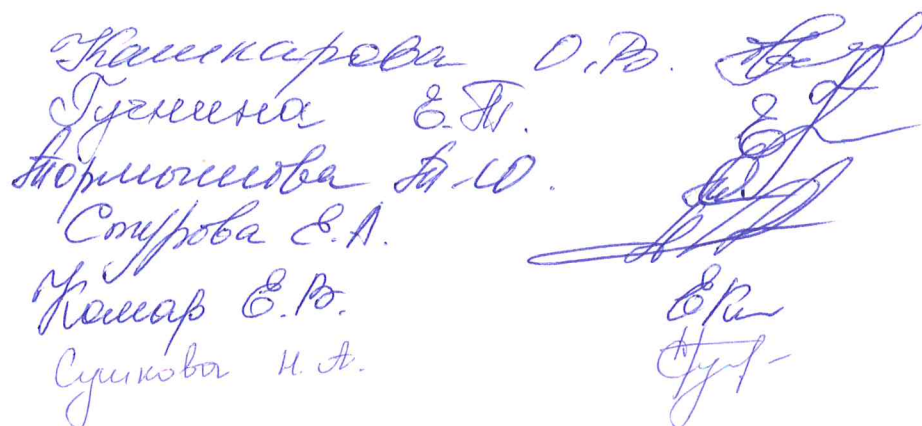 Кашкарова О.В.
Гучнина Е.Т.
Тормышова Т.Ю.
Стурова Е.А.
Комар Е.В.
Сушкова Н.А.